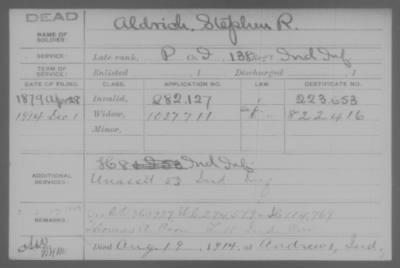 DEAD
NAME OF SOLDIER:
Aldrich, Stephen R.
SERVICE:
Late rank, P Co. I, 138 Reg't Ind Inf
TERM OF SERVICE:
Enlisted , 1 Discharged , 1
DATE OF FILING. CLASS. APPLICATION NO. LAW. CERTIFICATE NO.
1879 Apr 28 Invalid, 282,127 223.653
1914 Dec 1 Widow, 1037711 822416
Minor,
ADDITIONAL SERVICES:
H 68 Ind Inf
Unassd 53 Ind Inf
REMARKS:
Died Aug. 19, 1914, at Andrews, Ind.